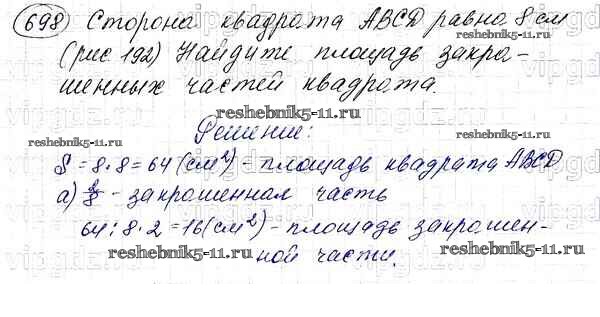 698 Сторона квадрата ABCD равна 8 см
(рис 192) Найдите площадь закра-
шенных частей квадрата.
reshebnik5-11.ru reshebnik5-11.ru
Решение:
S = 8·8 = 64 (см²) - площадь квадрата ABCD
а) 2/8 - закрашенная часть
64 : 8 · 2 = 16 (см²) - площадь закрашен-
ной части.
reshebnik5-11.ru reshebnik5-11.ru